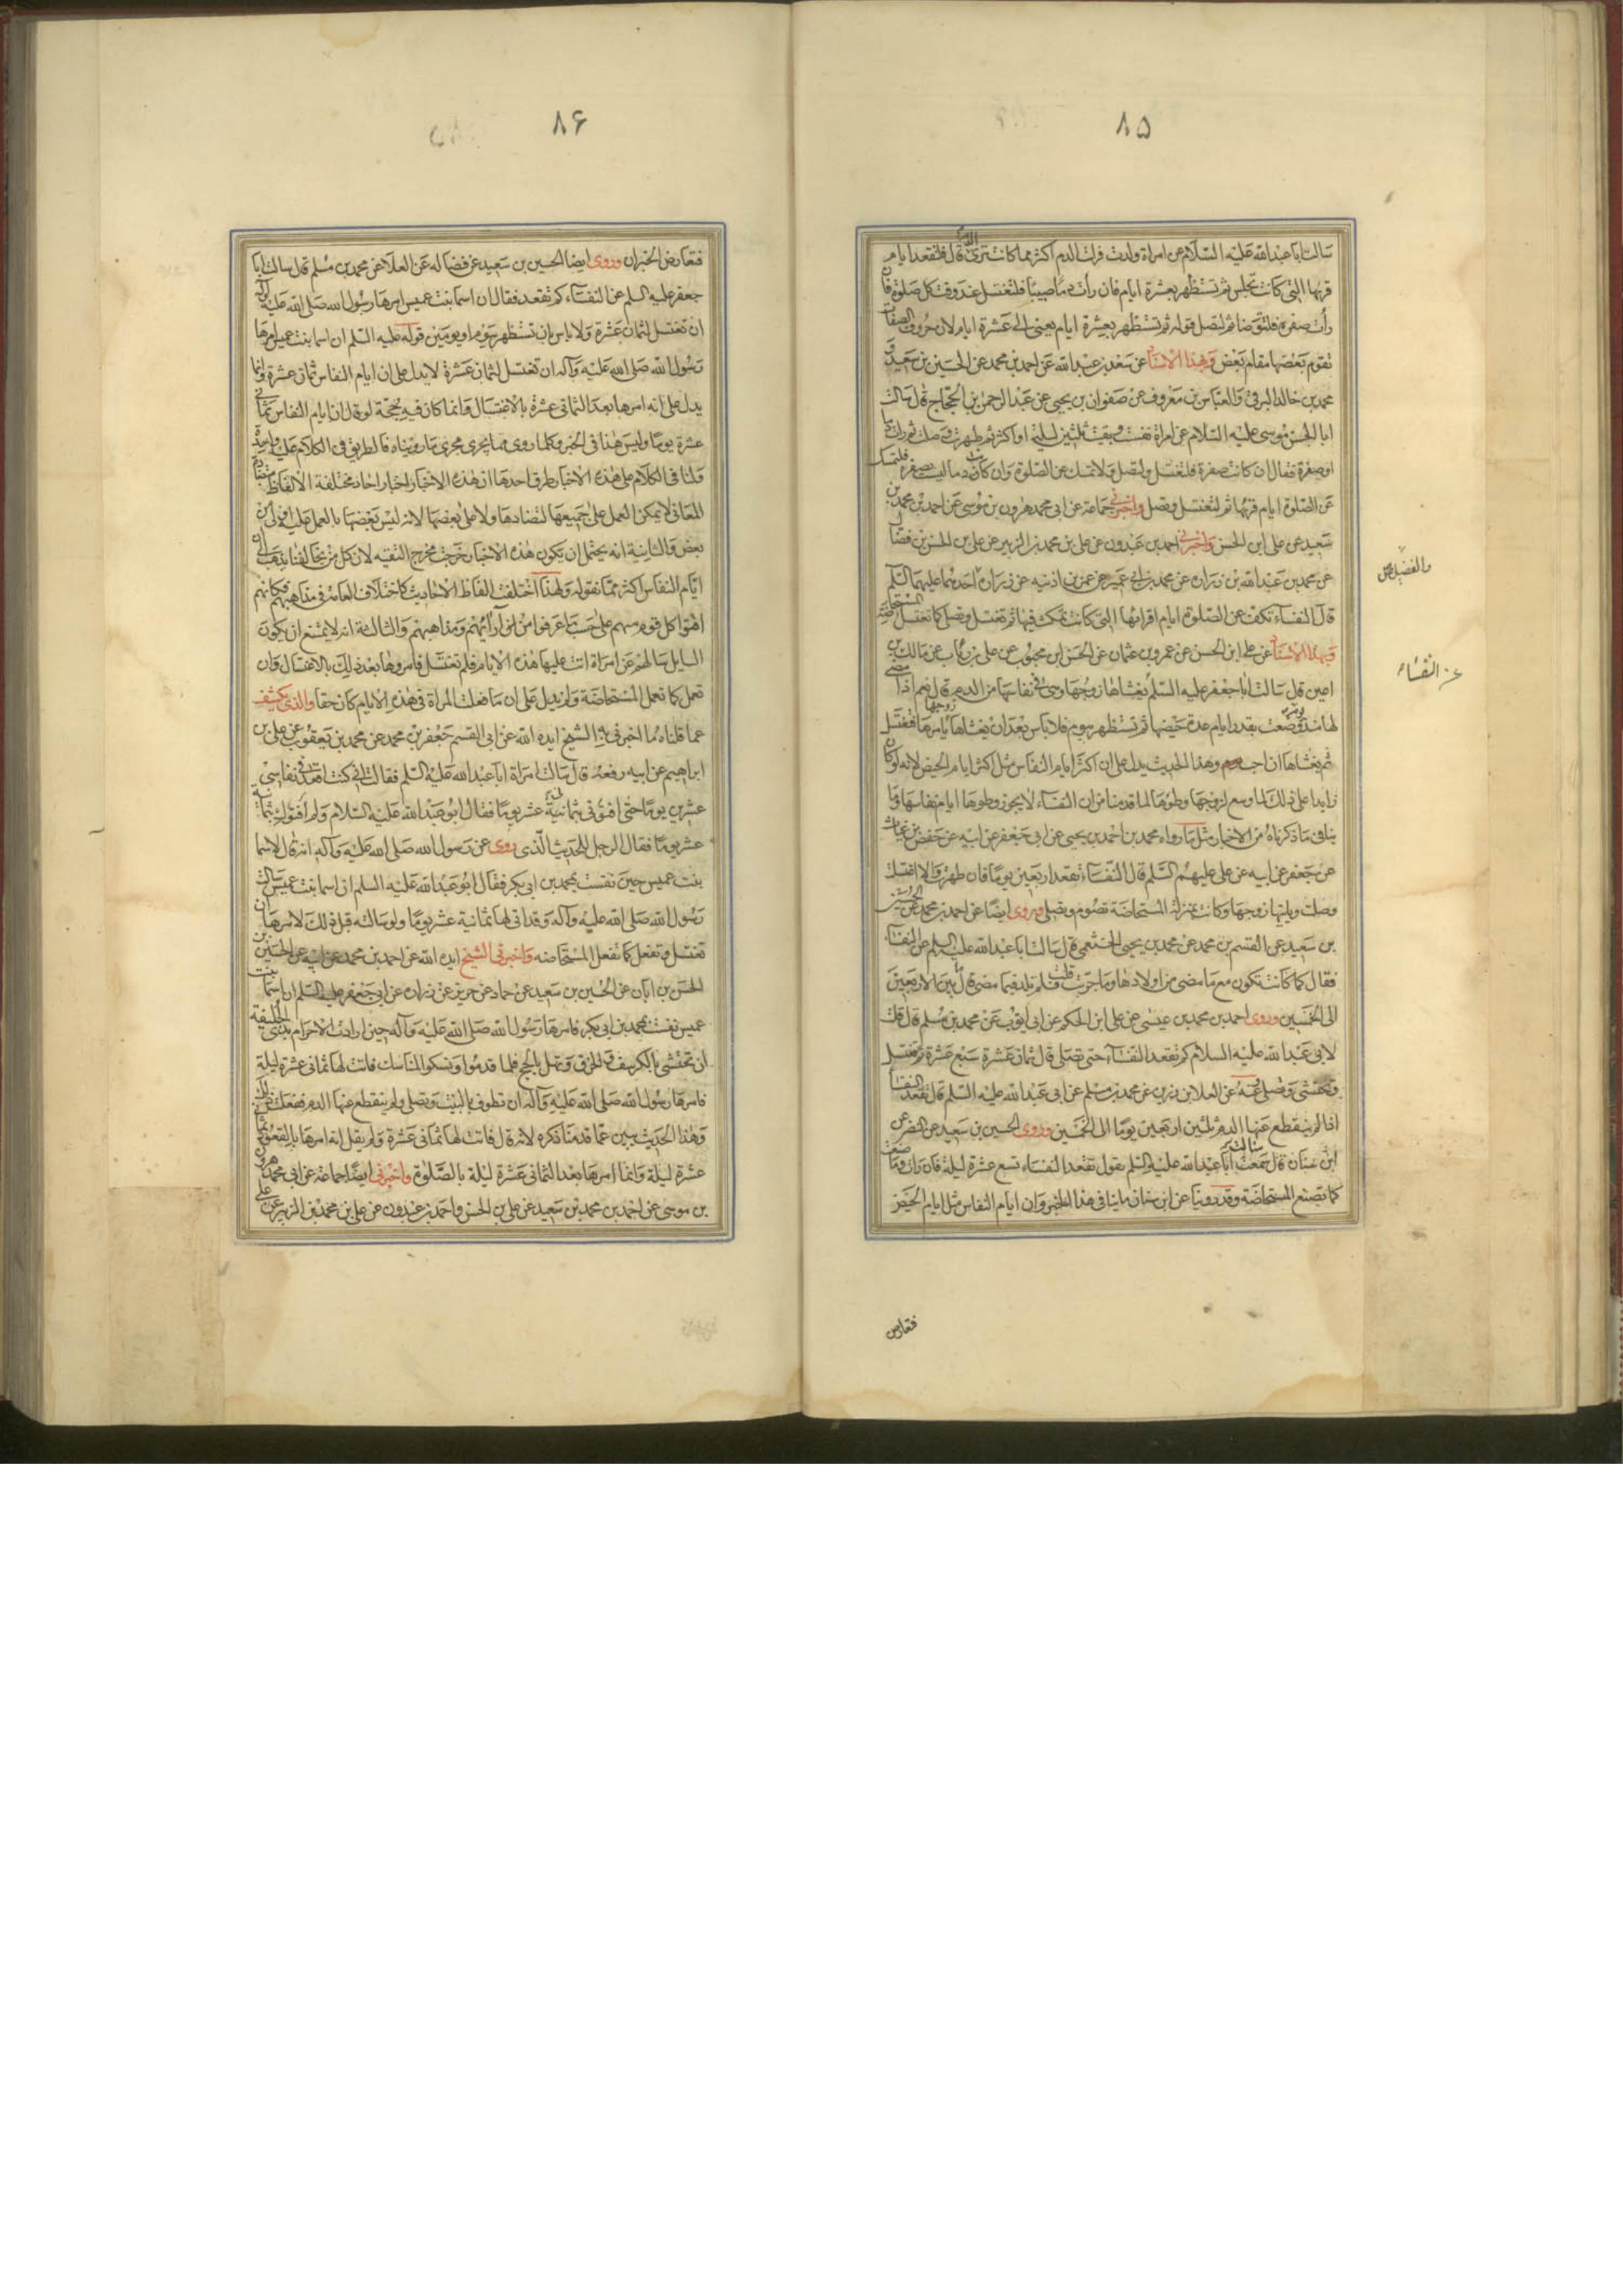 ٨۵
سالت ابا عبدالله عليه السلام عن امراة ولدت فرات الدم اكثر مما كانت ترى قال فلتقعد ايام
قرئها التي كانت تجلس ثم تستظهر بعشرة ايام فان رأت دما صبيبا فلتغتسل عند وقت كل صلوة فان
رأت صفرة فلتتوضا ثم لتصل قوله ثم تستظهر بعشرة ايام يعنى الى عشرة ايام لان حروف الصفات
تقوم بعضها مقام بعض وبهذا الاسناد عن سعد بن عبدالله عن احمد بن محمد عن الحسين بن سعيد و
محمد بن خالد البرقى والعباس بن معروف عن صفوان بن يحيى عن عبدالرحمن بن الحجاج قال سالت
ابا الحسن موسى عليه السلام عن امراة نفست وبقيت ثلثين ليلة او اكثر ثم طهرت وصلت ثم رات دما
او صفرة فقال ان كانت صفرة فلتغتسل ولتصل ولا تمسك عن الصلوة وان كان دما ليست بصفرة فلتمسك
عن الصلوة ايام قرئها ثم لتغتسل وتصل واخبرنى جماعة عن ابى محمد هرون بن موسى عن احمد بن محمد بن
سعيد عن على ابن الحسن واخبرنى احمد بن عبدون عن على بن محمد بن الزبير عن على بن الحسن بن فضال
عن محمد بن عبدالله بن زرارة عن محمد بن ابى عمير عن عمر بن اذينه عن زرارة عن احدهما عليهما السلم
والفضيل
قال النفساء تكف عن الصلوة ايام اقرائها التى كانت تمكث فيها ثم تغتسل وتصلى كما تغتسل المستحاضة
وبهذا الاسناد عن على ابن الحسن عن عمرو بن عثمان عن الحسن ابن محبوب عن على بن رئاب عن مالك بن
عن النفساء
اعين قال سالت ابا جعفر عليه السلم يغشاها زوجها وهى فى نفاسها من الدم قال نعم اذا مضى
لها منذ يوم وضعت بقدر ايام عدة حيضها ثم تستظهر بيوم فلا باس بعد ان يغشاها زوجها يامرها فتغتسل
ثم يغشاها ان احب وهذا الحديث يدل على ان اكثر ايام النفاس مثل اكثر ايام الحيض لانه لو كان
زايدا على ذلك لما وسع لزوجها وطؤها لما قدمنا من ان النفساء لا يجوز وطؤها ايام نفاسها وما
ينافى ما ذكرناه من الاخبار مثل ما رواه محمد بن احمد بن يحيى عن ابى جعفر عن ابيه عن حفص بن غياث
عن جعفر عن ابيه عن على عليهم السلم قال النفساء تقعد اربعين يوما فان طهرت والا اغتسلت
وصلت وياتيها زوجها وكانت بمنزلة المستحاضة تصوم وتصلى وروى ايضا عن احمد بن محمد عن الحسين
بن سعيد عن القسم بن محمد عن محمد بن يحيى الخثعمى قال سالت ابا عبدالله عليه السلم عن النفساء
فقال كما كانت تكون مع ما مضى من اولادها وما جربت قلت فلم تلد فيما مضى قال بين الاربعين
الى الخمسين وروى احمد بن محمد بن عيسى عن على ابن الحكم عن ابى ايوب عن محمد بن مسلم قال قلت
لابى عبدالله عليه السلام كم تقعد النفساء حتى تصلى قال ثمان عشرة سبع عشرة ثم تغتسل
وتحتشى وتصلى وعنه عن العلا بن رزين عن محمد بن مسلم عن ابى عبدالله عليه السلم قال تقعد النفساء
اذا لم ينقطع عنها الدم ثلثين اربعين يوما الى الخمسين وروى الحسين بن سعيد عن النضر عن
ابن سنان قال سمعت ابا عبدالله عليه السلم يقول تقعد النفساء تسع عشرة ليلة فان رات دما صنعت
كما تصنع المستحاضة وقد روينا عن ابن سنان ما ينافى هذا الخبر وان ايام النفاس مثل ايام الحيض
فتعارض
٨۶
فتعارض الخبران وروى ايضا الحسين بن سعيد عن فضاله عن العلا عن محمد بن مسلم قال سالت ابا
جعفر عليه السلم عن النفساء كم تقعد فقال ان اسما بنت عميس امرها رسول الله صلى الله عليه وآله
ان تغتسل لثمان عشرة ولا باس بان تستظهر بيوم او يومين قوله عليه السلم ان اسما بنت عميس امرها
رسول الله صلى الله عليه وآله ان تغتسل لثمان عشرة لا يدل على ان ايام النفاس ثمان عشرة وانما
يدل على انه امرها بعد الثمانى عشرة بالاغتسال وانما كان فيه حجة لو قال ان ايام النفاس ثمانى
عشرة يوما وليس هذا فى الخبر وكلما روى مما يجرى مجرى ما رويناه فالطريق فى الكلام عليه واحدة
ولنا فى الكلام على هذه الاخبار طرق احدها ان هذه الاخبار اخبار احاد مختلفة الالفاظ متضادة
المعانى لا يمكن العمل على جميعها لتضادها ولا على بعضها لانه ليس بعضها بالعمل عليه اولى من
بعض والثانية انه يحتمل ان يكون هذه الاخبار خرجت مخرج التقيه لان كل من يخالفنا يذهب الى ان
ايام النفاس اكثر مما نقوله ولهذا اختلفت الفاظ الاحاديث كاختلاف العامة فى مذاهبهم فكانهم
افتوا كل قوم منهم على حسب ما عرفوا من آرائهم ومذاهبهم والثالثة انه لا يمتنع ان يكون
السايل سالهم عن امراة اتت عليها هذه الايام فلم تغتسل فامروها بعد ذلك بالاغتسال وان
تعمل كما تعمل المستحاضة ولم يدل على ان ما فعلت المراة فى هذه الايام كان حقا والذى يكشف
عما قلناه ما اخبرنى به الشيخ ايده الله عن ابى القسم جعفر بن محمد عن محمد بن يعقوب عن على بن
ابراهيم عن ابيه رفعه قال سالت امراة ابا عبدالله عليه السلم فقالت انى كنت اقعد فى نفاسى
عشرين يوما حتى افتونى بثمانية عشر يوما فقال ابو عبدالله عليه السلام ولم افتوك بثمانية
عشر يوما فقال الرجل للحديث الذى روى عن رسول الله صلى الله عليه وآله انه قال لاسما
بنت عميس حين نفست بمحمد بن ابى بكر فقال ابو عبدالله عليه السلم ان اسما بنت عميس سالت
رسول الله صلى الله عليه وآله وقد اتى لها ثمانية عشر يوما ولو سالته قبل ذلك لامرها ان
تغتسل وتفعل كما تفعل المستحاضه واخبرنى الشيخ ايده الله عن احمد بن محمد عن ابيه عن الحسين بن
الحسن بن ابان عن الحسين بن سعيد عن حماد عن حريز عن زراره عن ابى جعفر عليه السلم ان اسما بنت
عميس نفست بمحمد بن ابى بكر فامرها رسول الله صلى الله عليه وآله حين ارادت الاحرام بذى الحليفة
ان تحتشى بالكرسف والخرق وتهل بالحج فلما قدموا ونسكوا المناسك فاتت لها ثمانى عشرة ليلة
فامرها رسول الله صلى الله عليه وآله ان تطوف بالبيت وتصلى ولم ينقطع عنها الدم ففعلت ذلك
وهذا الحديث يبين عما قدمنا ذكره لانه قال فاتت لها ثمانى عشرة ولم يقل انه امرها بالقعود ثمانى
عشرة ليلة وانما امرها بعد الثمانى عشرة ليلة بالصلوة واخبرنى ايضا جماعة عن ابى محمد هرون
بن موسى عن احمد بن محمد بن سعيد عن على بن الحسن واحمد بن عبدون عن على بن محمد بن الزبير عن على